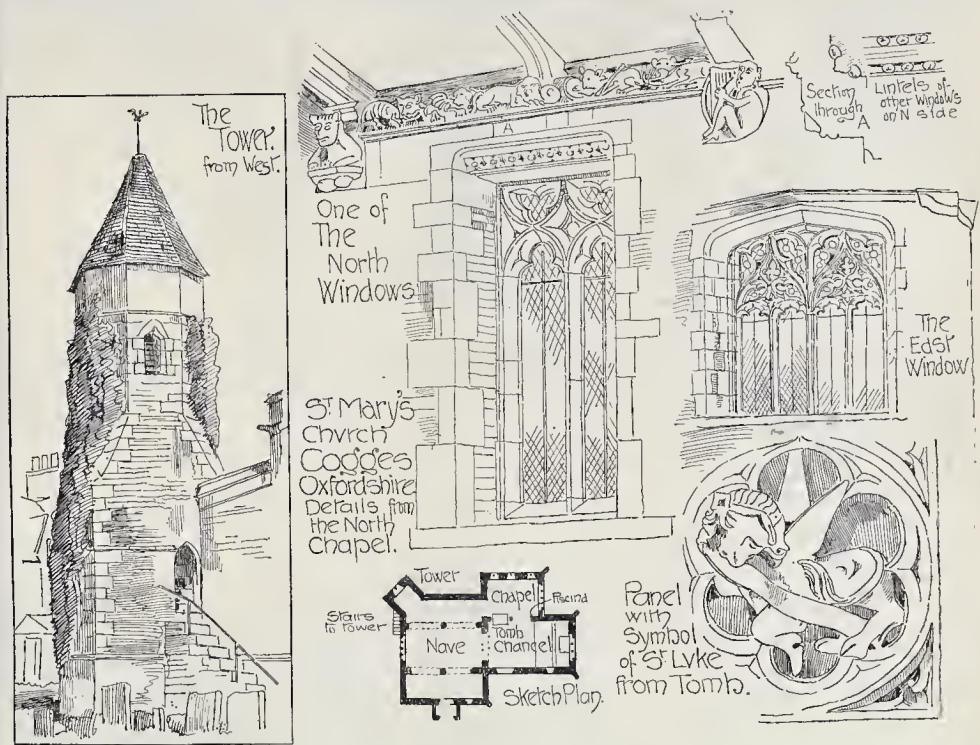 The
Tower.
from West.
A
Section
through
A
Lintels of
other Windows
on N side
One of
The
North
Windows
The
East
Window
St. Mary's
Chvrch
Cogges
Oxfordshire
Details from
the North
Chapel.
Tower
Stairs
to tower
Chapel
Piscina
Tomb
Nave
Chancel
Sketch Plan.
Panel
with
Symbol
of St. Lvke
from Tomb.